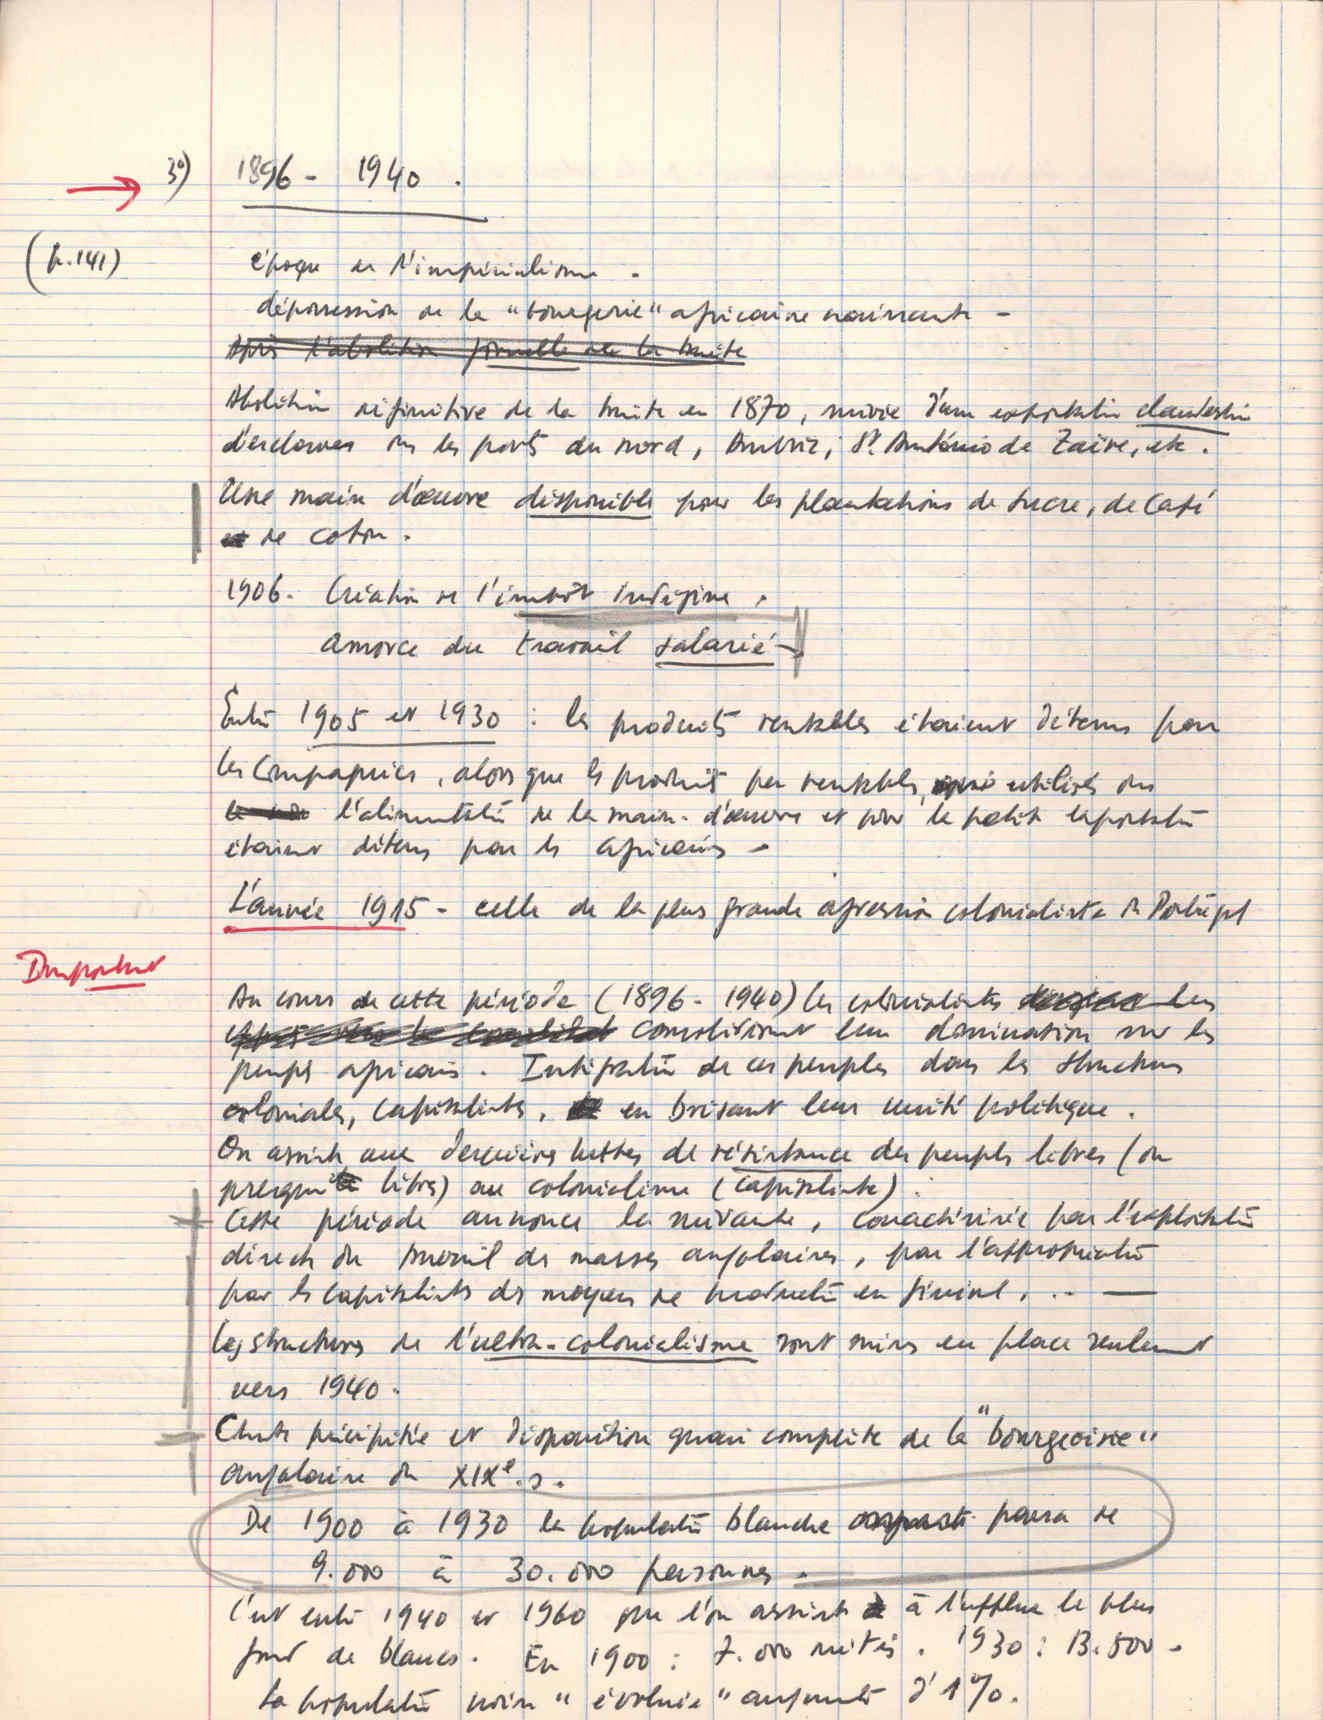 3°) 1896 - 1940 .
(p.141)
époque de l'impérialisme .
dépossession de la "bourgeoisie" africaine naissante -
Après l'abolition formelle de la traite
Abolition définitive de la traite en 1870, suivie d'une exportation clandestine
d'esclaves les ports du nord, Ambriz, St António de Zaïre, etc.
Une main d'œuvre disponible pour les plantations de sucre, de café
de coton .
1906 - Création de l'impôt indigène .
amorce du travail salarié
Entre 1905 et 1930 : les produits rentables étaient détenus par
les Compagnies, alors que les produits peu rentables, utilisés
l'alimentation de la main-d'œuvre et pour la petite exportation
étaient détenus par les africains -
L'année 1915 - celle de la plus grande agression colonialiste du Portugal
Important
Au cours de cette période (1896 - 1940) les colonialistes
consolidèrent leur domination sur les
peuples africains . Intégration de ces peuples dans les structures
coloniales, capitalistes, en brisant leur unité politique .
On assiste aux dernières luttes de résistance des peuples libres (ou
presque libres) au colonialisme (capitaliste) .
Cette période annonce la suivante, caractérisée par l'exploitation
directe du travail des masses angolaises, par l'appropriation
par les capitalistes des moyens de production en général, ... —
Les structures de l'ultra-colonialisme sont mises en place seulement
vers 1940 .
Chute précipitée et disparition quasi complète de la "bourgeoisie"
angolaise du XIXe s .
De 1900 à 1930 la population blanche passa de
9.000 à 30.000 personnes .
C'est entre 1940 et 1960 que l'on assiste à l'afflux le plus
fort de blancs . En 1900 : 7.000 métis . 1930 : 13.500 -
La population noire "évoluée" augmente d'1% .